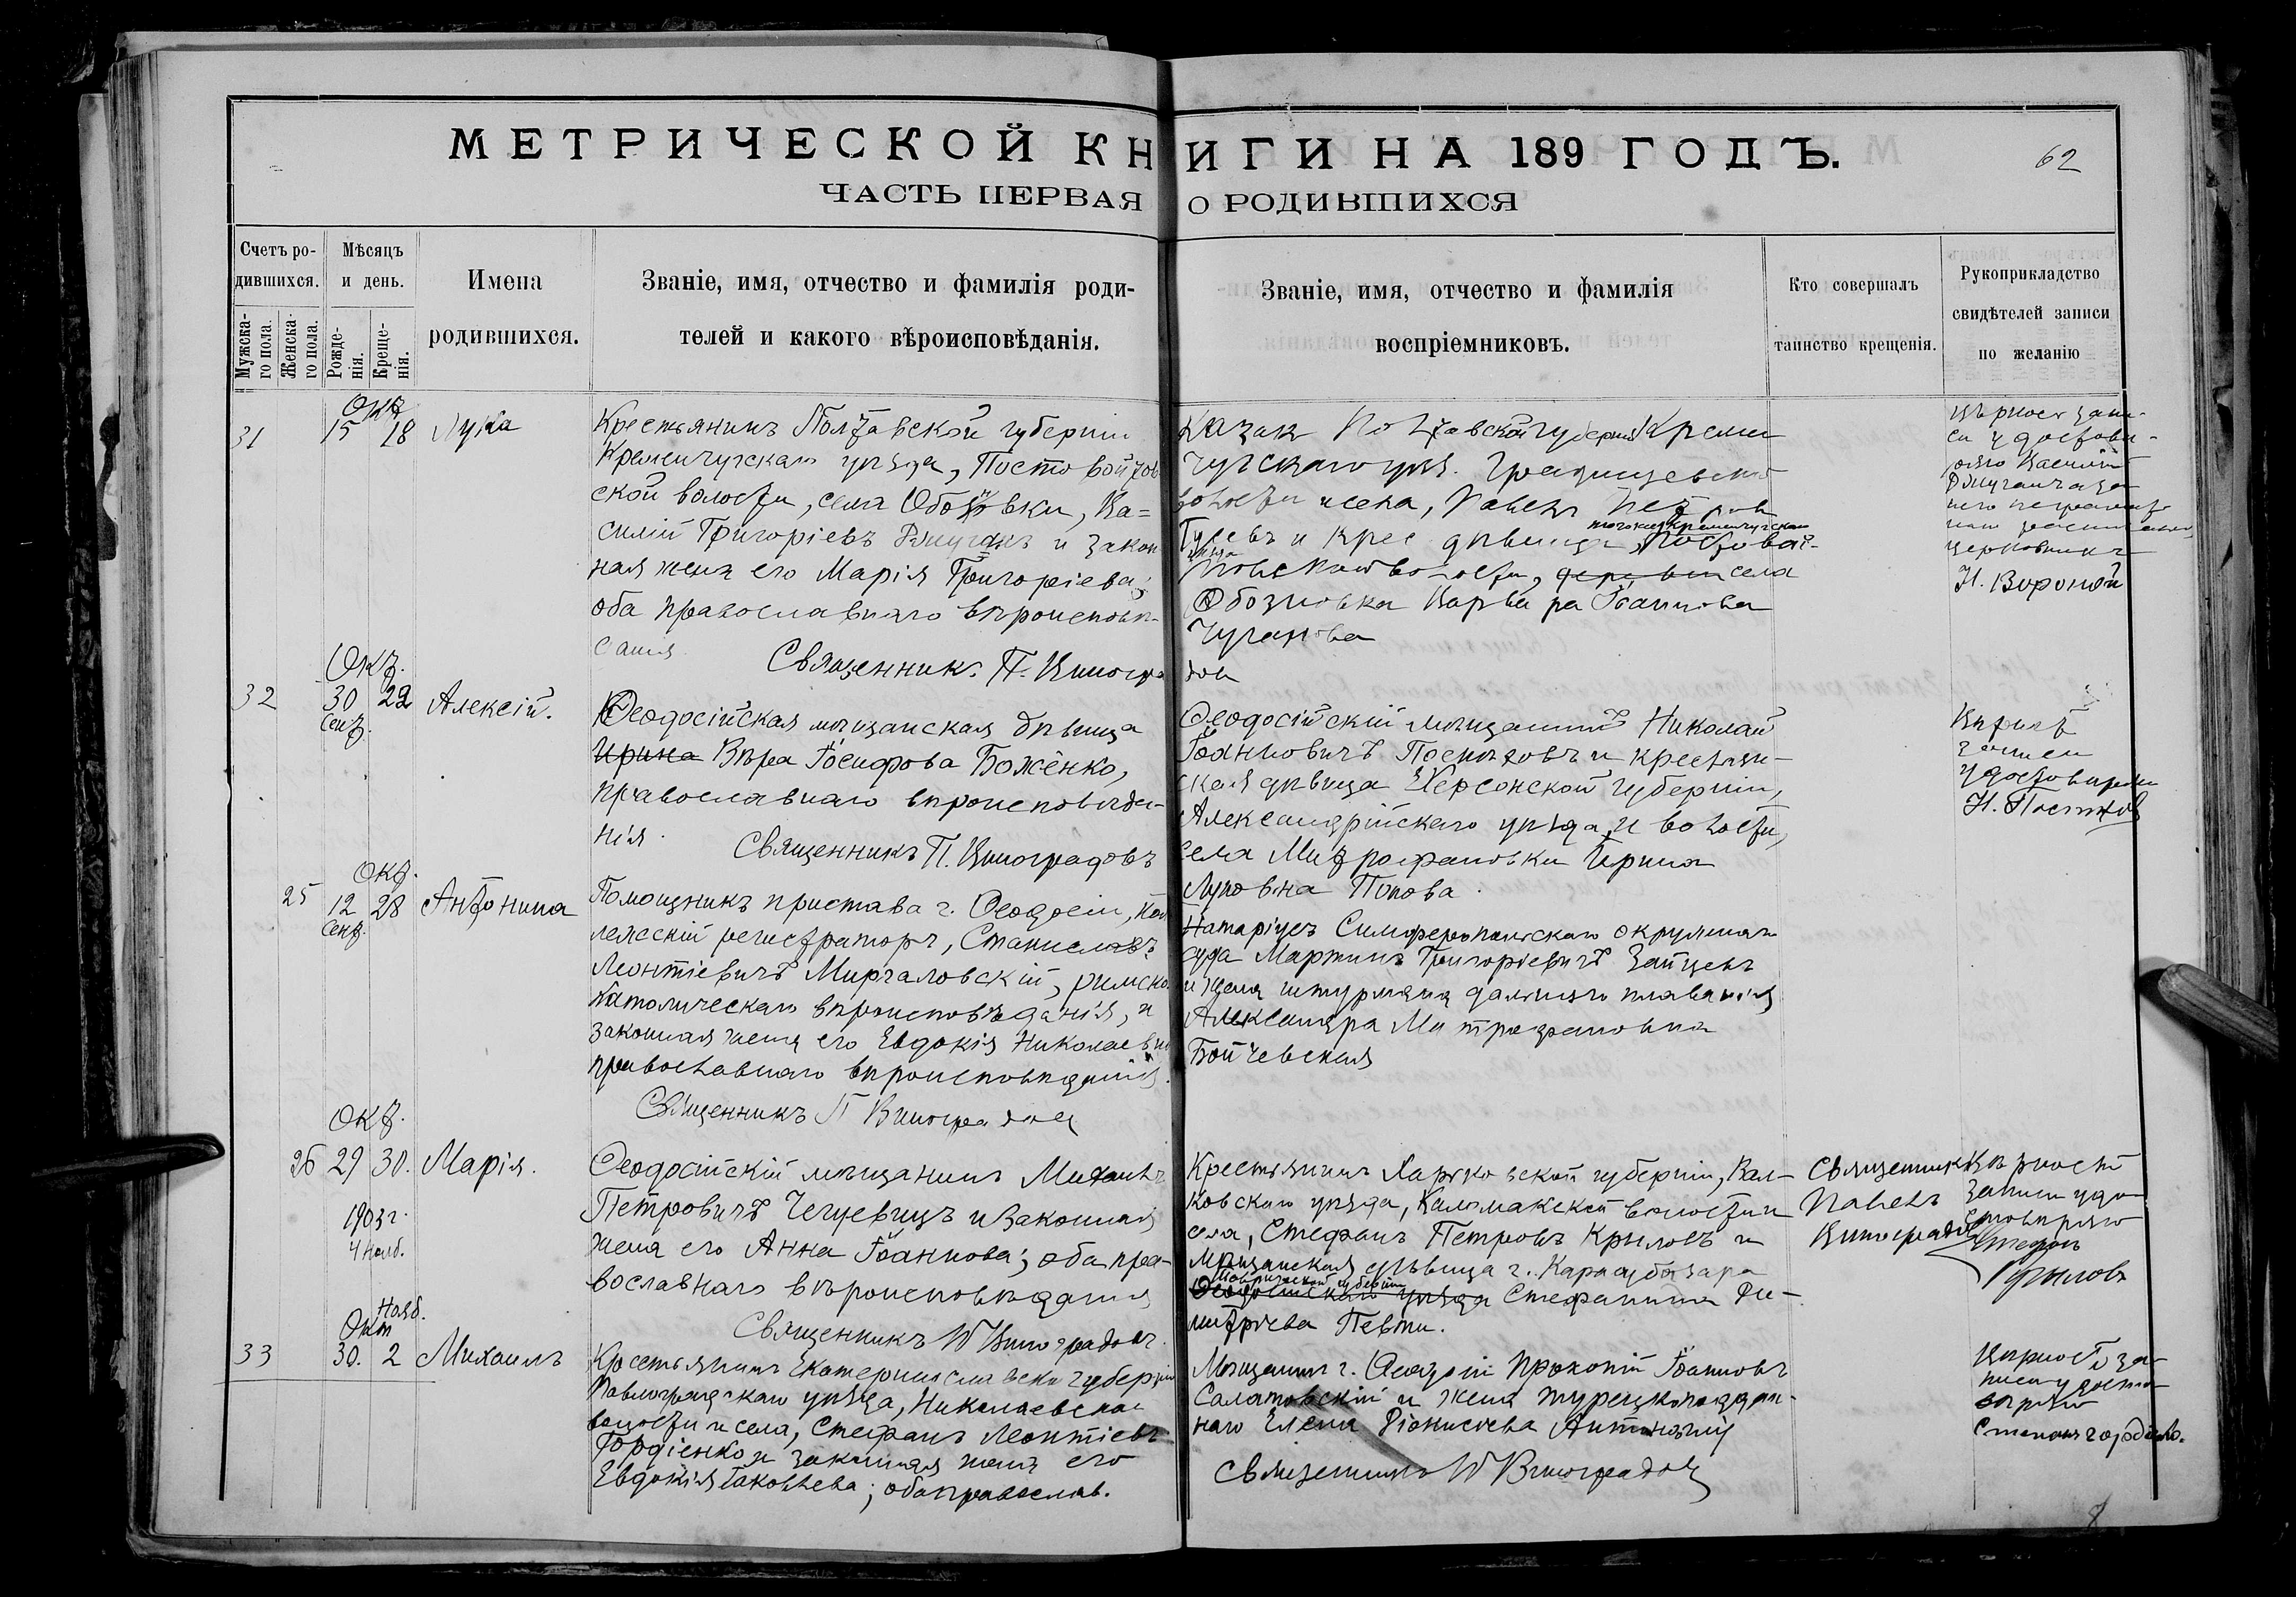 МЕТРИЧЕСКОЙ КНИГИ НА 189 ГОДЪ.
62
ЧАСТЬ ПЕРВАЯ О РОДИВШИХСЯ
Счетъ ро-
дившихся.
Мужска-
го пола.
Женска-
го пола.
Мѣсяцъ
и день.
Рожде-
нія.
Креще-
нія.
Имена
родившихся.
Званіе, имя, отчество и фамилія роди-
телей и какого вѣроисповѣданія.
Званіе, имя, отчество и фамилія
воспріемниковъ.
Кто совершалъ
таинство крещенія.
Рукоприкладство
свидѣтелей записи
по желанію
Окт
31 15 18 Лука
Крестьянинъ Полтавской губерніи
Кременчугскаго уѣзда,
ской волости, села Ва-
силій Григоріевъ и закон
ная жена его Марія Григоріева;
оба православнаго вѣроисповѣ-
Священникъ П. Виноградов
Казак Полтавской губерніи Кремен
чугскаго уѣз.
волости села, Павелъ
и Крес дѣвица
волости, села
Обозновка Варвара Іоаннова
Чуганова
церковникъ
Н. Вороной
Окт.
32 30 22 Алексій.
Сент.
Ѳеодосійская мѣщанская дѣвица
Ирина Вѣра Іосифова Боженко,
православнаго вѣроисповѣда-
нія.
Священникъ П. Виноградовъ
Ѳеодосійскій мѣщанинъ Николай
Іоанновичъ и крестьян-
ская дѣвица Херсонской губерніи,
Александрійскаго уѣзда, и волости,
села Митрофановки Ирина
Луковна Попова.
записи
удостовѣряю
Окт.
25 12 28 Антонина
Сент.
Помощникъ пристава г. Ѳеодосіи, кол
лежскій регистраторъ, Станиславъ
Леонтіевичъ Миргаловскій, римско
католическаго вѣроисповѣданія, и
законная жена его Евдокія Николаевна
православнаго вѣроисповѣданія.
Священникъ П Виноградов
Натаріусъ Симферопольскаго окружнаго
суда Мартинъ Григорьевичъ Зайцевъ
и жена штурмана дальняго плаванія
Александра Митрофановна
Бойчевская
Окт.
26 29 30. Марія.
1903 г.
4 Нояб.
Ѳеодосійскій мѣщанинъ Михаилъ
Петровичъ Чечевицъ и законная
жена его Анна Іоаннова; оба пра-
вославнаго вѣроисповѣданія
Священникъ П Виноградовъ
Крестьянинъ Харьковской губерніи, Вал-
ковскаго уѣзда, Коломакской волости и
села, Стефанъ Петровъ Крыловъ и
мѣщанская дѣвица г. Карасубазара
Таврической губерніи
Ѳеодосійскаго уѣзда Стефанина Ди-
митріева Певти.
Священникъ
Павелъ
Виноградов
Вѣрность
записи удо-
стовѣряю
Стефан
Крыловъ
Окт Нояб.
33 30. 2 Михаилъ
Крестьянинъ Екатеринославской губерніи
Павлоградскаго уѣзда, Николаевской
волости и села, Стефанъ Леонтіевъ
Гордіенко и законная жена его
Евдокія Іаковлева; оба православ.
Мѣщанинъ г. Ѳеодосіи Прокопій Іоанновъ
Салатовскій и жена турецкоподдан-
наго Елена Діонисіева
Священникъ П Виноградов
Вѣрность за-
писи удосто-
вѣряю
8